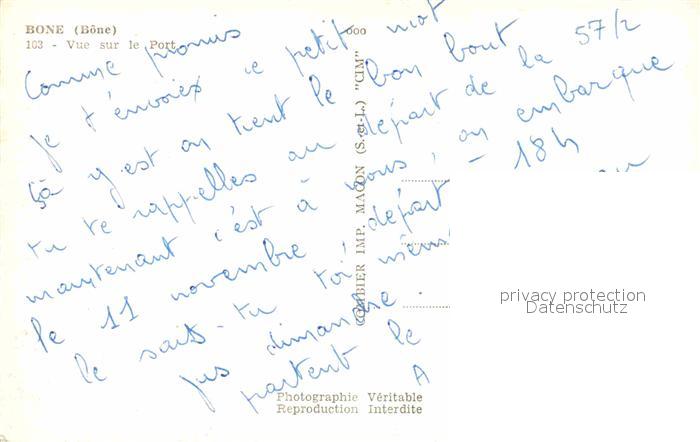 BONE (Bône)
103 - Vue sur le Port
Comme promis
je t'envoies ce petit mot
ça y est on tient le bon bout
tu te rappelles au départ de la 57/2
maintenant c'est à nous, on embarque
le 11 novembre départ - 18h
le sais-tu toi
jus dimanche
partent le
A
COMBIER IMP. MACON (S.-et-L.) "CIM"
Photographie Véritable
Reproduction Interdite
privacy protection
Datenschutz